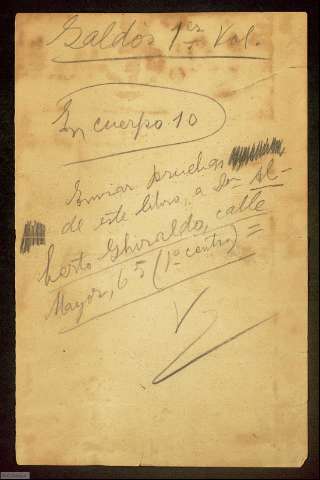 Galdós 1er Vol.
En cuerpo 10
Enviar pruebas
de este libro, a Don Al-
berto Ghiraldo, calle
Mayor, 6 (1º centro) =